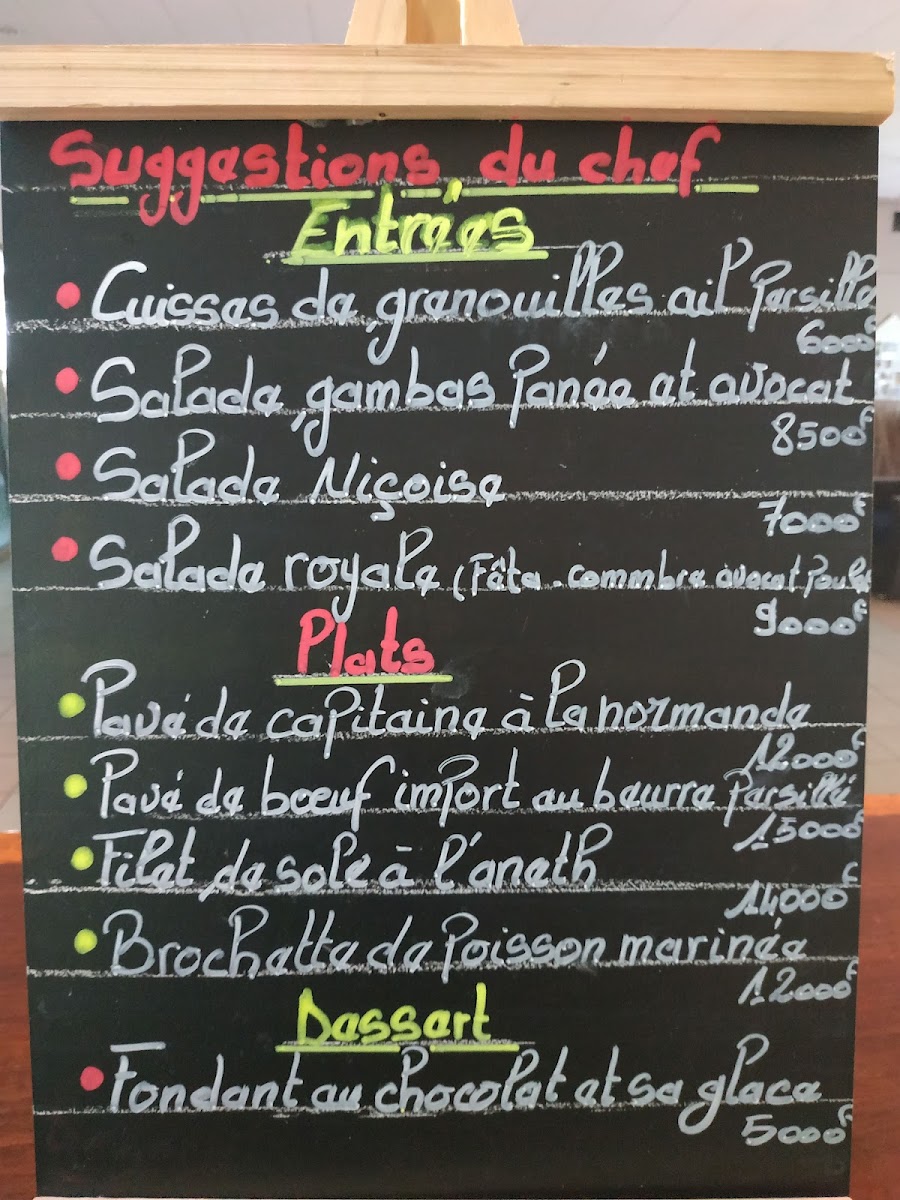 Suggestions du chef
Entrées
Cuisses de grenouilles ail Persille
6000F
Salade gambas Panée et avocat
8500F
Salade Niçoise
7000F
Salade royale (Fêta. commbre avocat Poulet
9000F
Plats
Pavé de capitaine à la normande
12000F
Pavé de bœuf import au beurre Persillé
15000F
Filet de sole à l'aneth
14000F
Brochette de Poisson marinée
12000F
Dessert
Fondant au chocolat et sa glace
5000F